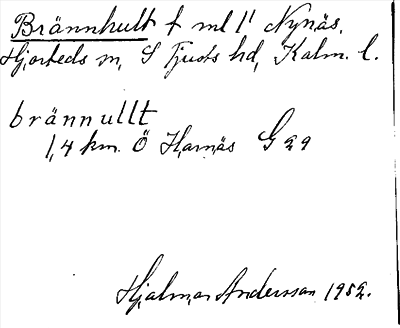 Brännhult t ml 1' Nynäs,
Hjorteds sn, S Tjusts hd, Kalm. l.
brännullt
1,4 km. Ö Harnäs G 29
Hjalmar Andersson 1952.